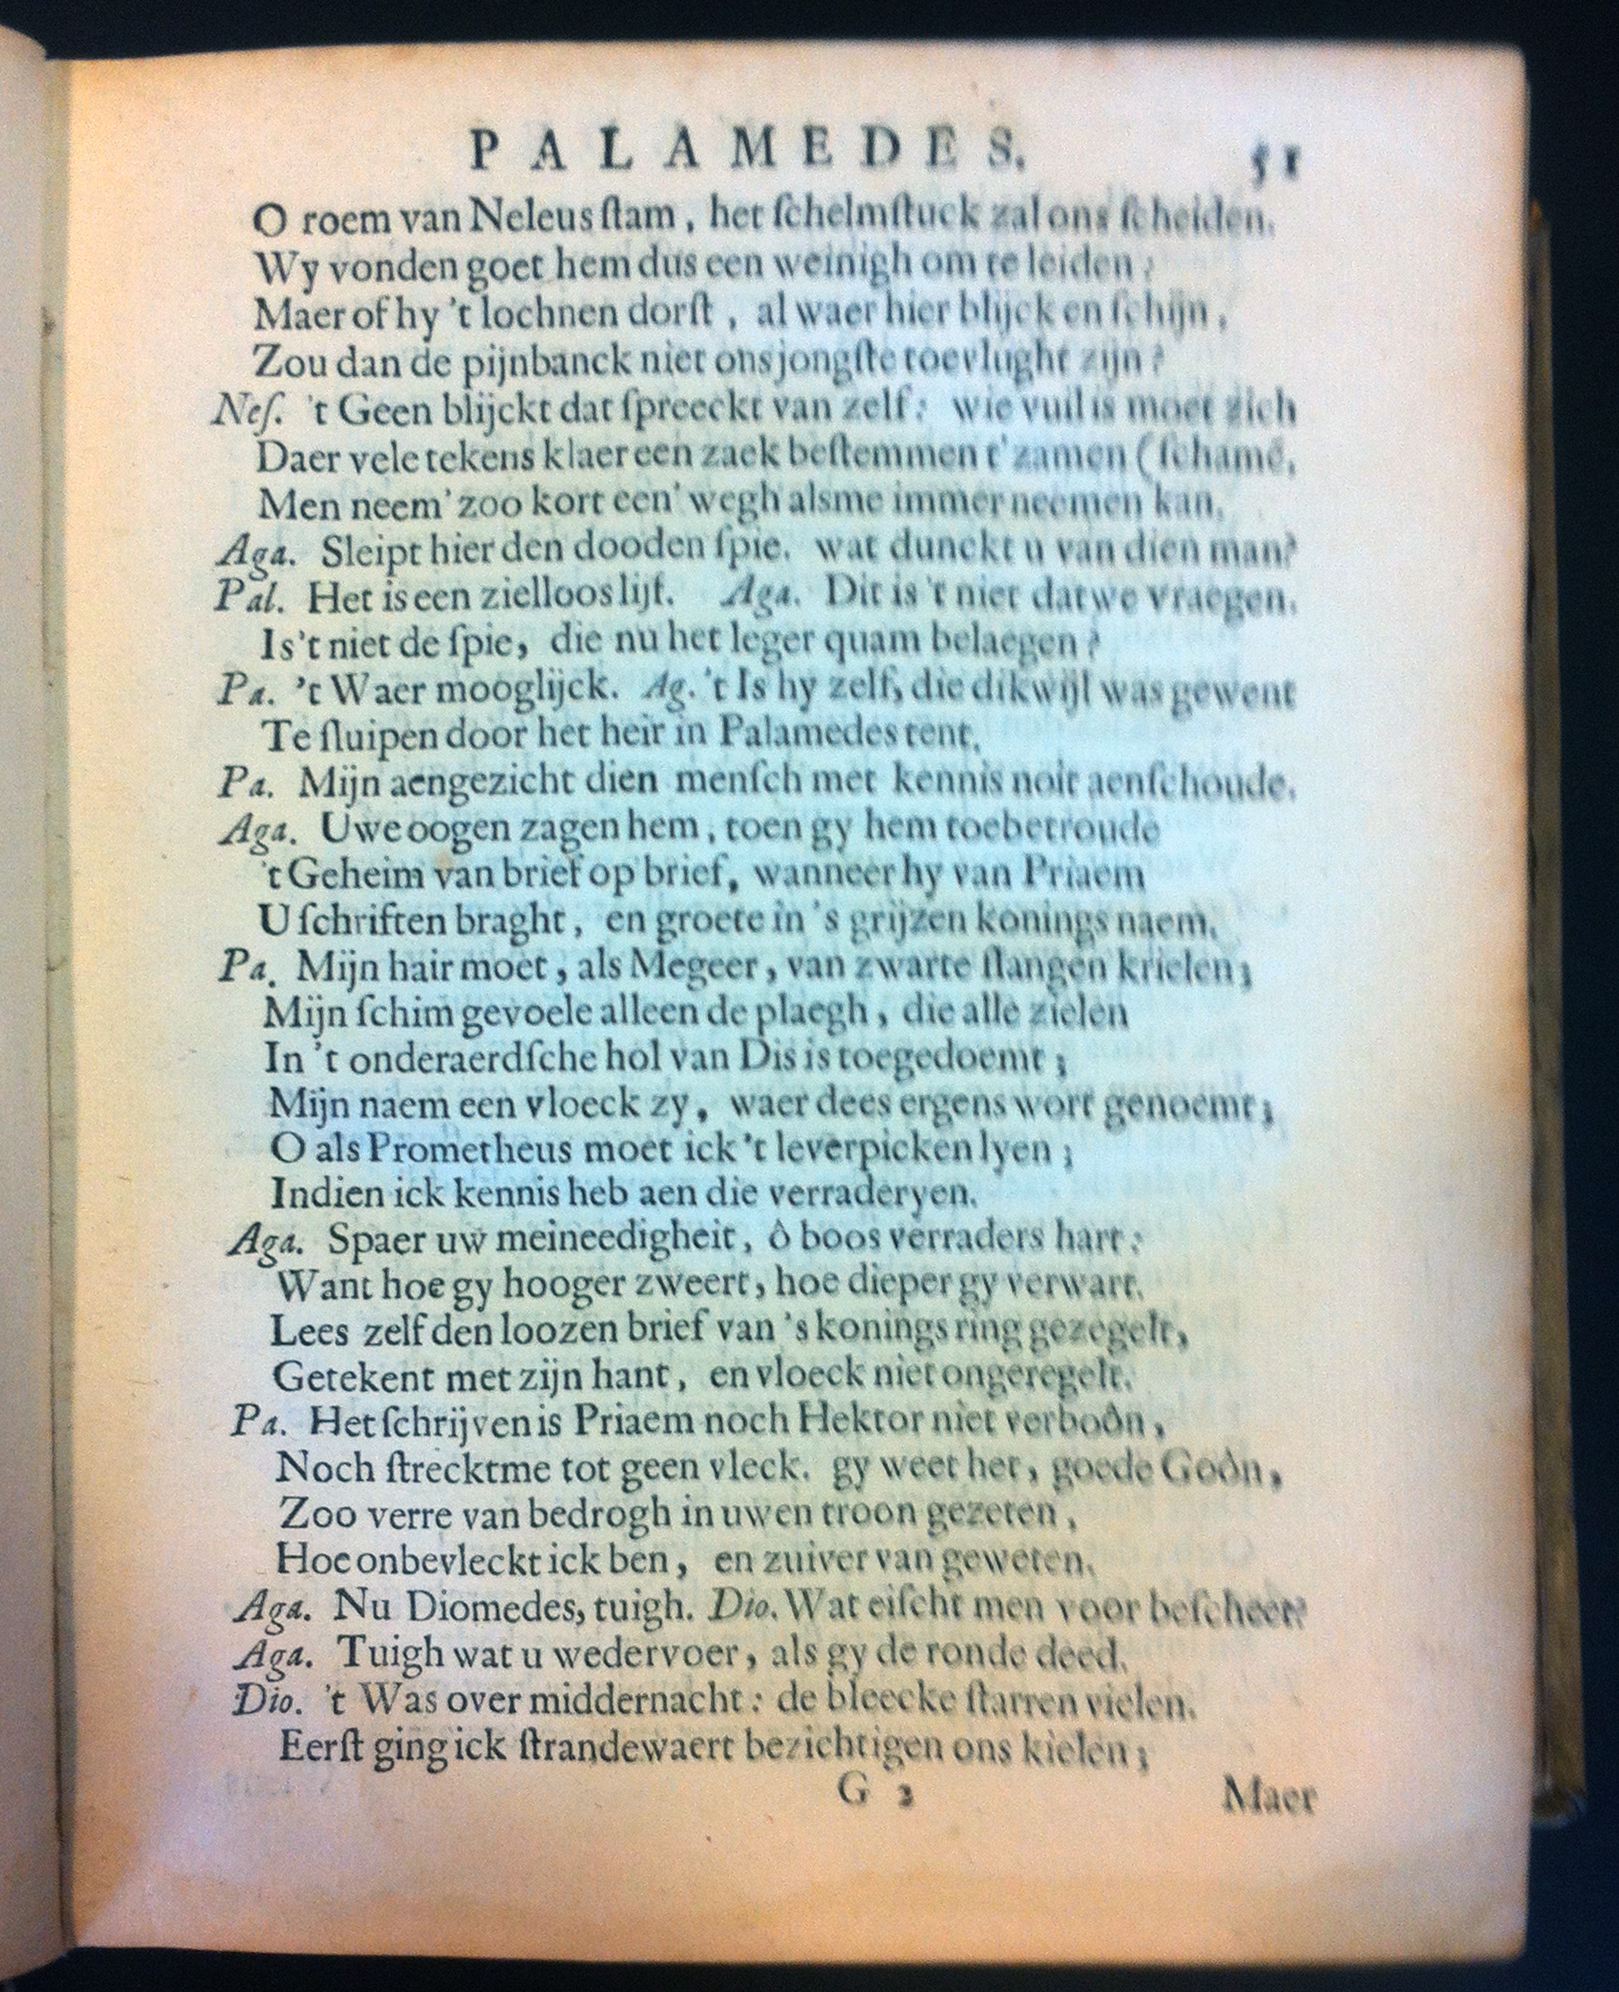 PALAMEDES. 51
O roem van Neleus ſtam, het ſchelmſtuck zal ons ſcheiden.
Wy vonden goet hem dus een weinigh om te leiden:
Maer of hy 't lochnen dorſt, al waer hier blijck en ſchijn,
Zou dan de pijnbanck niet ons jongſte toevlught zijn?
Neſ. 't Geen blijckt dat ſpreeckt van zelf: wie vuil is moet zich
Daer vele tekens klaer een zaek beſtemmen t'zamen (ſchamē,
Men neem' zoo kort een' wegh alsme immer neemen kan.
Aga. Sleipt hier den dooden ſpie. wat dunckt u van dien man?
Pal. Het is een zielloos lijf. Aga. Dit is 't niet dat we vraegen.
Is't niet de ſpie, die nu het leger quam belaegen?
Pa. 't Waer mooglijck. Ag. 't Is hy zelf, die dikwijl was gewent
Te ſluipen door het heir in Palamedes tent.
Pa. Mijn aengezicht dien menſch met kennis noit aenſchoude.
Aga. Uwe oogen zagen hem, toen gy hem toebetroude
't Geheim van brief op brief, wanneer hy van Priaem
U ſchriften braght, en groete in 's grijzen konings naem.
Pa. Mijn hair moet, als Megeer, van zwarte ſlangen krielen;
Mijn ſchim gevoele alleen de plaegh, die alle zielen
In 't onderaerdſche hol van Dis is toegedoemt;
Mijn naem een vloeck zy, waer dees ergens wort genoemt;
O als Prometheus moet ick 't leverpicken lyen;
Indien ick kennis heb aen die verraderyen.
Aga. Spaer uw meineedigheit, ô boos verraders hart:
Want hoe gy hooger zweert, hoe dieper gy verwart.
Lees zelf den loozen brief van 's konings ring gezegelt,
Getekent met zijn hant, en vloeck niet ongeregelt.
Pa. Het ſchrijven is Priaem noch Hektor niet verboôn,
Noch ſtrecktme tot geen vleck. gy weet het, goede Goôn,
Zoo verre van bedrogh in uwen troon gezeten,
Hoe onbevleckt ick ben, en zuiver van geweten.
Aga. Nu Diomedes, tuigh. Dio. Wat eiſcht men voor beſcheet?
Aga. Tuigh wat u wedervoer, als gy de ronde deed.
Dio. 't Was over middernacht: de bleecke ſtarren vielen.
Eerſt ging ick ſtrandewaert bezichtigen ons kielen;
G 2 Maer